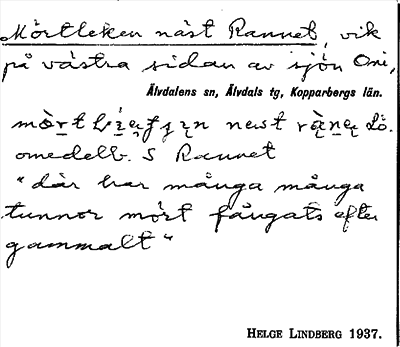 Mörtleken näst Rannet, vik
på västra sidan av sjön Oni,
Älvdalens sn, Älvdals tg, Kopparbergs län.
næst
omedelb. S Rannet
"där har många många
tunnor mört fångats efter
gammalt"
HELGE LINDBERG 1937.